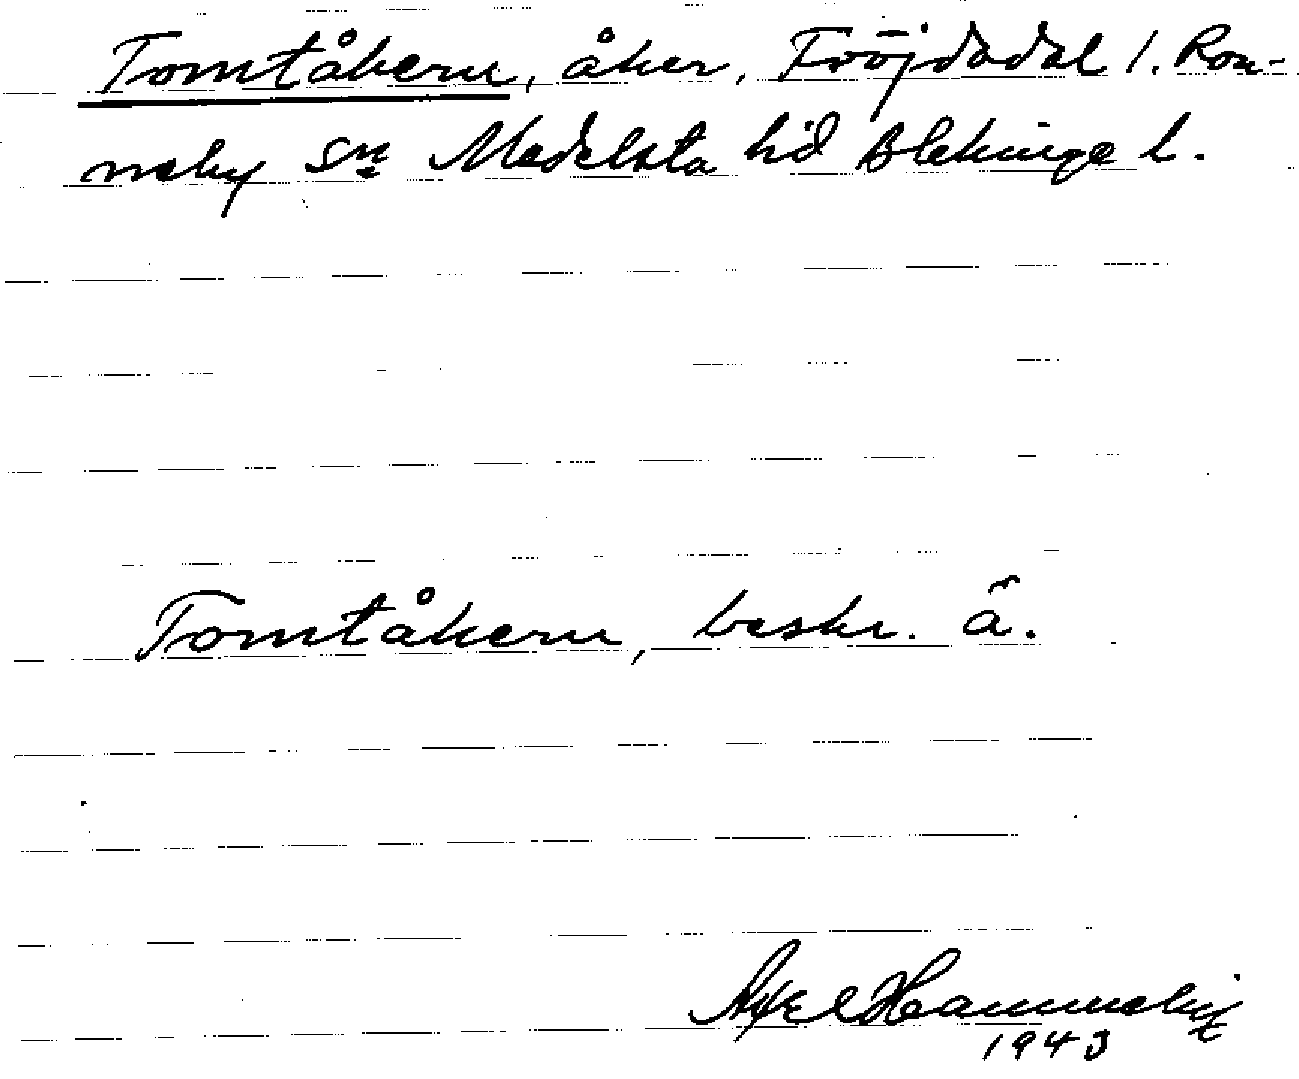 Tomtåkern, åker, Fröjdadal 1. Ron-
neby sn Medelsta hd Blekinge l.
Tomtåkern, beskr. ä.
Axel Hammeli
1943